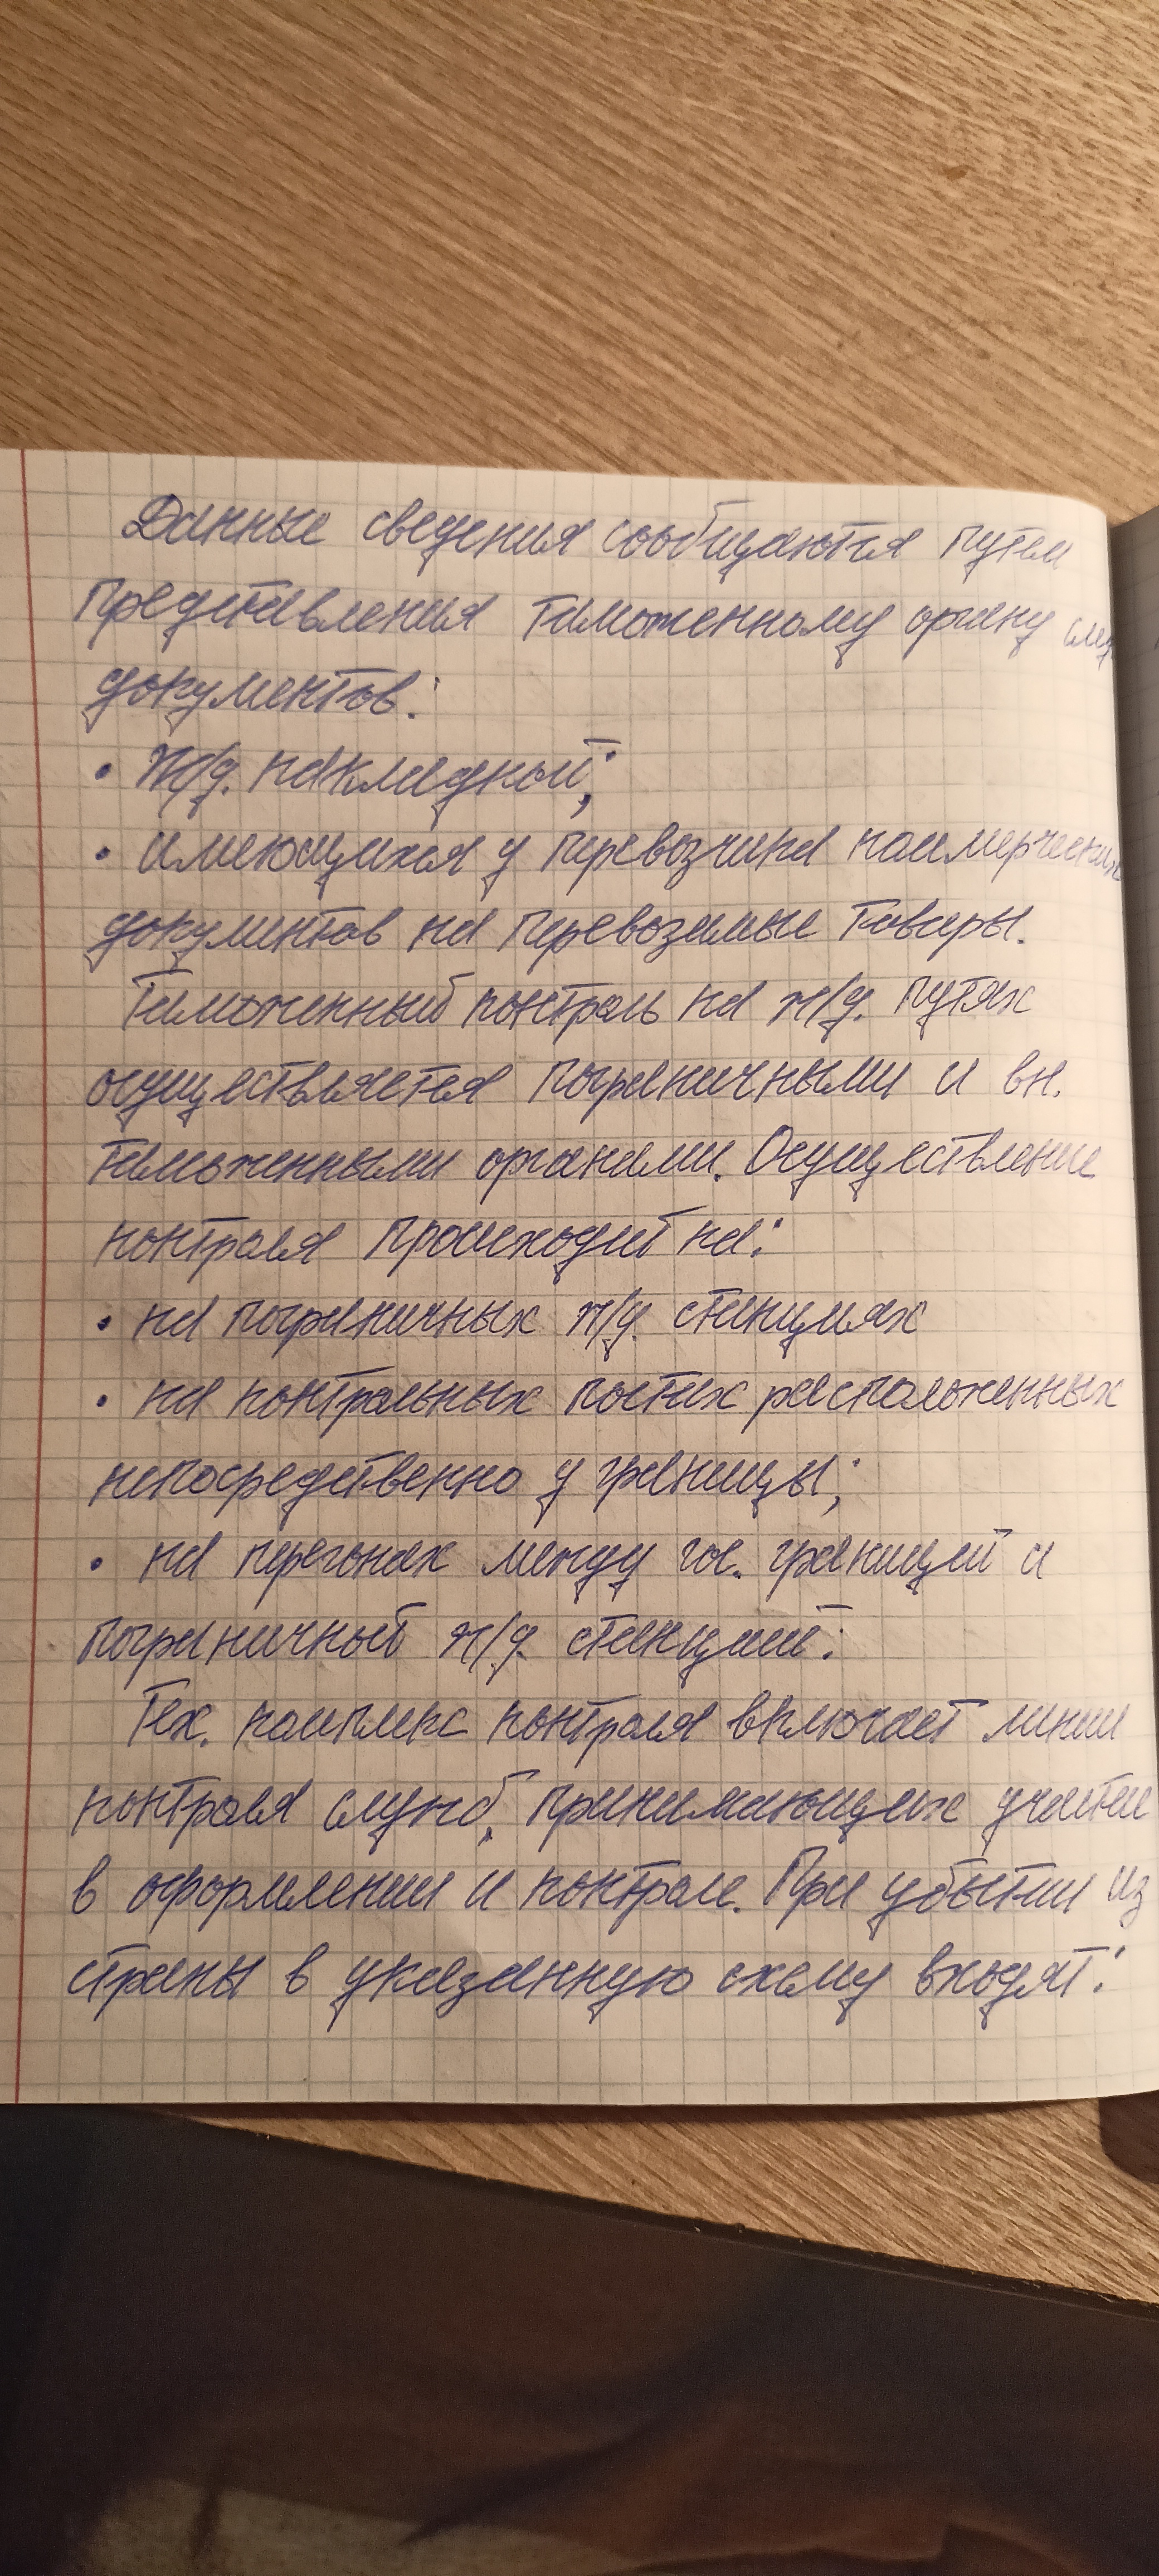 Данные сведения сообщаются путем
представления таможенному органу
документов:
• ж/д. накладной;
• имеющихся у перевозчика коммерческих
документов на перевозимые товары.
Таможенный контроль на ж/д. путях
осуществляется пограничными и вн.
таможенными органами. Осуществление
контроля происходит на:
• на пограничных ж/д. станциях
• на контрольных постах расположенных
непосредственно у границы;
• на перегонах между гос. границей и
пограничной ж/д. станцией.
Тех. комплекс контроля включает линии
контроля служб, принимающих участие
в оформлении и контроле. При убытии из
страны в указанную схему входят: